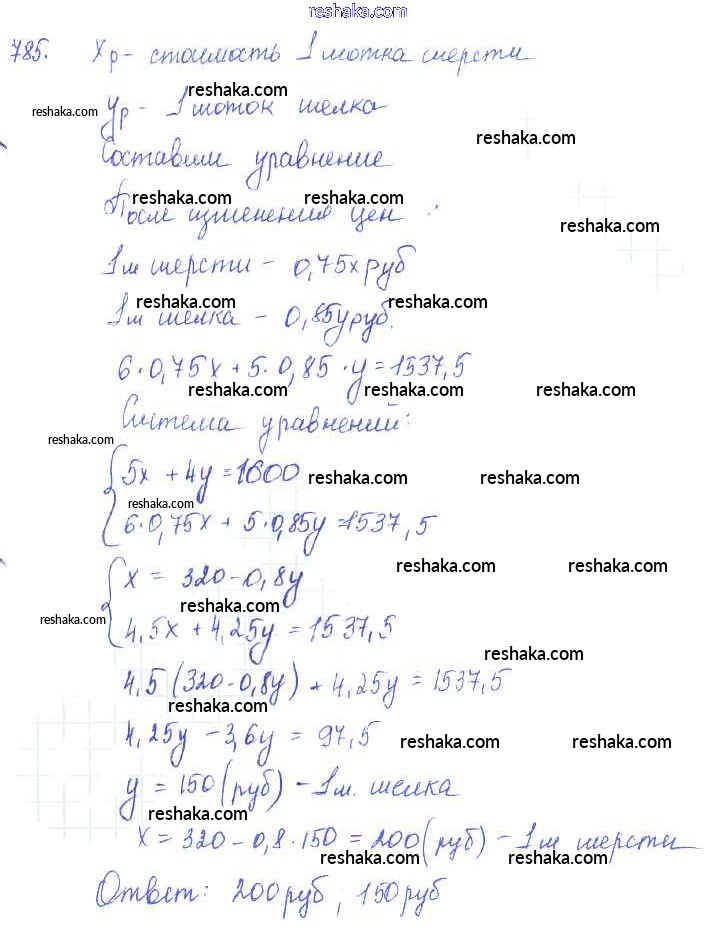 reshaka.com
785. Xр - стоимость 1 мотка шерсти
reshaka.com
reshaka.com
yр - 1 моток шелка
reshaka.com
Составим уравнение
reshaka.com reshaka.com
После изменения цен :
reshaka.com
1м шерсти - 0,75x руб
reshaka.com reshaka.com
1м шелка - 0,85y руб.
6·0,75x + 5·0,85·y = 1537,5
reshaka.com reshaka.com
Система уравнений:
reshaka.com
5x + 4y = 1600
reshaka.com reshaka.com
reshaka.com
6·0,75x + 5·0,85y = 1537,5
reshaka.com reshaka.com
x = 320 - 0,8y
reshaka.com
reshaka.com
4,5x + 4,25y = 1537,5
reshaka.com
4,5(320-0,8y) + 4,25y = 1537,5
reshaka.com
4,25y - 3,6y = 97,5
reshaka.com reshaka.com
y = 150 (руб) - 1м. шелка
reshaka.com
x = 320 - 0,8·150 = 200 (руб) - 1м шерсти
reshaka.com reshaka.com
Ответ: 200 руб; 150 руб